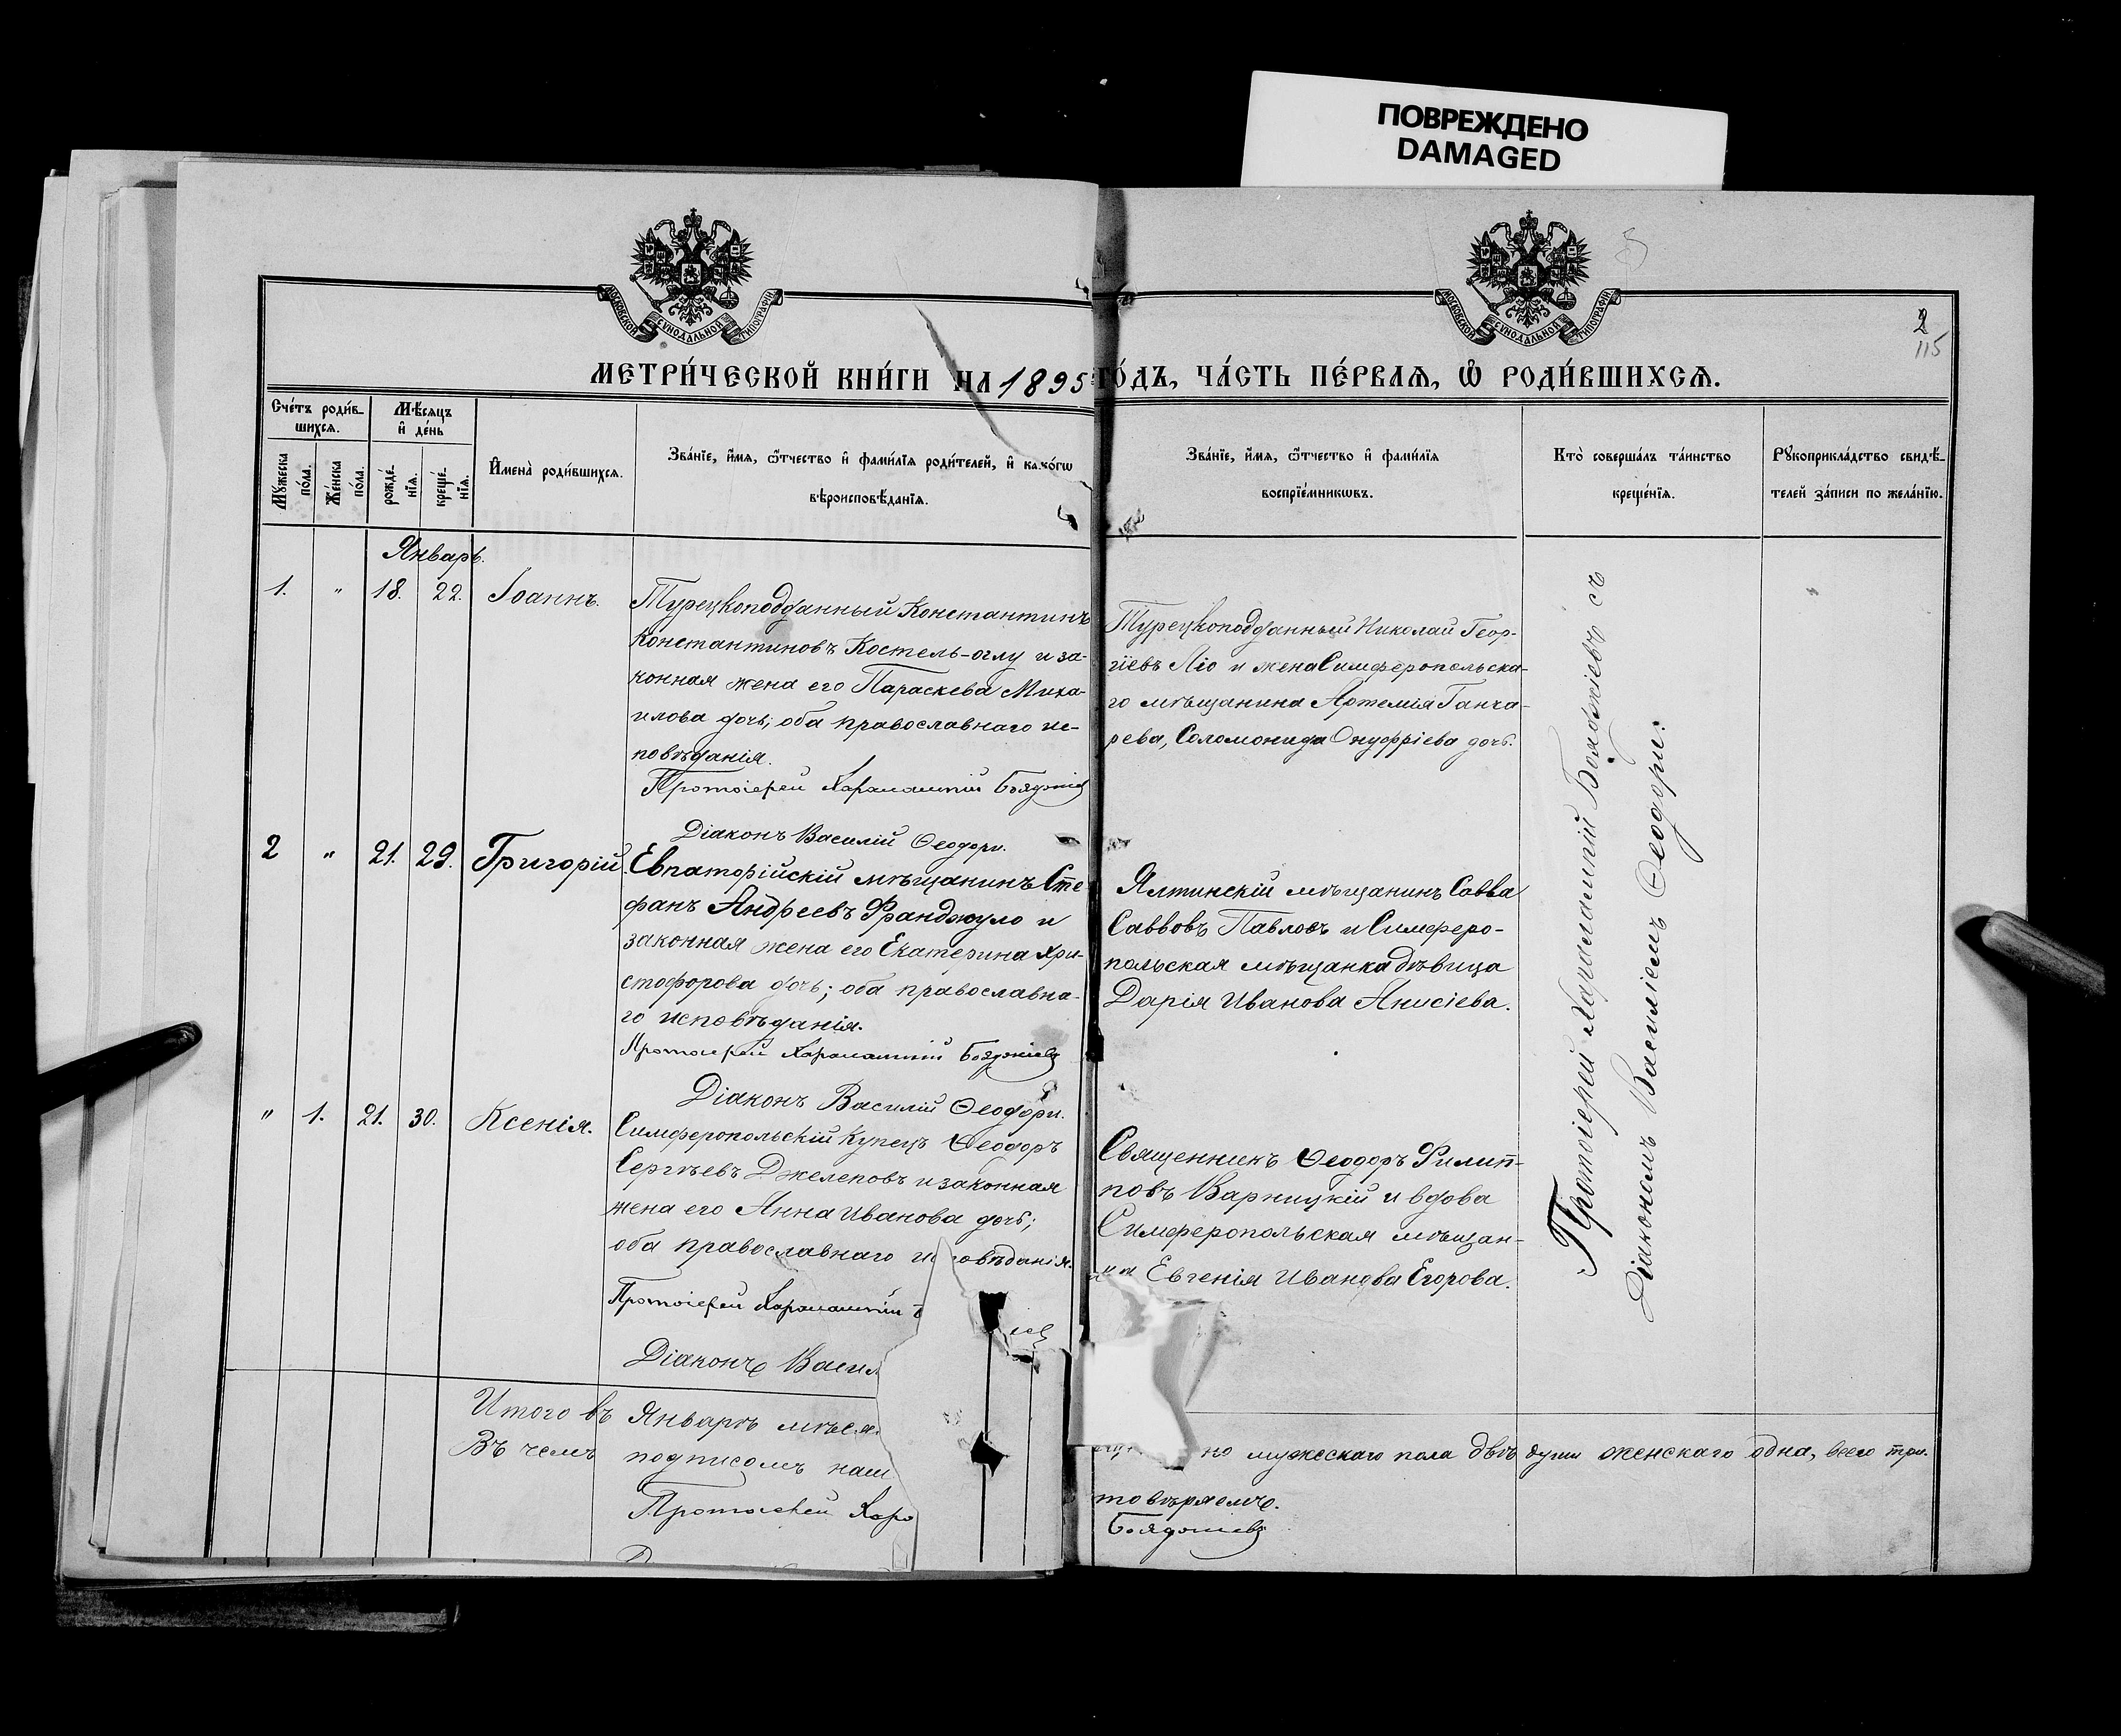 ПОВРЕЖДЕНО
DAMAGED
МОСКОВСКОЙ СУНОДАЛЬНОЙ ТИПОГРАФІИ
МОСКОВСКОЙ СУНОДАЛЬНОЙ ТИПОГРАФІИ
5
2
115
МЕТРИ́ЧЕСКОЙ КНИ́ГИ НА 1895 ГО́ДЪ, ЧА́СТЬ ПЕ́РВАѦ, Ѡ҆ РОДИ́ВШИХСѦ.
Сче́тъ роди́в-
шихсѧ.
Мꙋ́жеска по́ла.
Же́нска по́ла.
Мѣ́сѧцъ
и҆ де́нь
рожде́-
нїѧ.
креще́-
нїѧ.
И҆мена̀ роди́вшихсѧ.
Зва́нїе, и҆́мѧ, ѻ҆́тчество и҆ фами́лїѧ роди́телей, и҆ како́гѡ
вѣроисповѣ́данїѧ.
Зва́нїе, и҆́мѧ, ѻ҆́тчество и҆ фами́лїѧ
воспрїе́мникѡвъ.
Кто̀ соверша́лъ та́инство
креще́нїѧ.
Рꙋкоприкла́дство свидѣ́-
телей за́писи по жела́нїю.
Январь.
1. " 18. 22. Іоаннъ.
Турецкоподданный Константинъ
Константиновъ Костель-оглу и за-
конная жена его Параскева Миха-
илова дочь; оба православнаго ис-
повѣданія.
Протоіерей Харалампій Бояджіевъ
Діаконъ Василій Ѳеодори.
Турецкоподданный Николай Геор-
гіевъ Ліо и жена Симферопольска-
го мѣщанина Артемія Ганча-
рева, Соломонида Онуфріева дочь.
2 " 21. 29. Григорій.
Евпаторійскій мѣщанинъ Сте
фанъ Андреевъ Франджуло и
законная жена его Екатерина Хри-
стофорова дочь; оба православна-
го исповѣданія.
Протоіерей Харалампій Бояджіевъ
Діаконъ Василій Ѳеодори.
Ялтинскій мѣщанинъ Савва
Саввовъ Павловъ и Симферо-
польская мѣщанка дѣвица
Дарія Иванова Анисіева.
" 1. 21. 30. Ксенія.
Симферопольскій Купецъ Ѳеодоръ
Сергѣевъ Джелеповъ и законная
жена его Анна Иванова дочь;
оба православнаго ис овѣданія.
Протоіерей Харалампій Б
іевъ
Діаконъ Васил
Священникъ Ѳеодоръ Филип-
повъ Варницкій и вдова
Симферопольская мѣщан-
ка Евгенія Иванова Егорова.
Протоіерей Харалампій Бояджіевъ съ
Діакономъ Василіемъ Ѳеодори:
Итого въ Январѣ мѣся
но мужескаго пола двѣ души женскаго одна, всего три.
Въ чемъ подписомъ наш
товѣряемъ.
Протоіерей Хара
Бояджіевъ